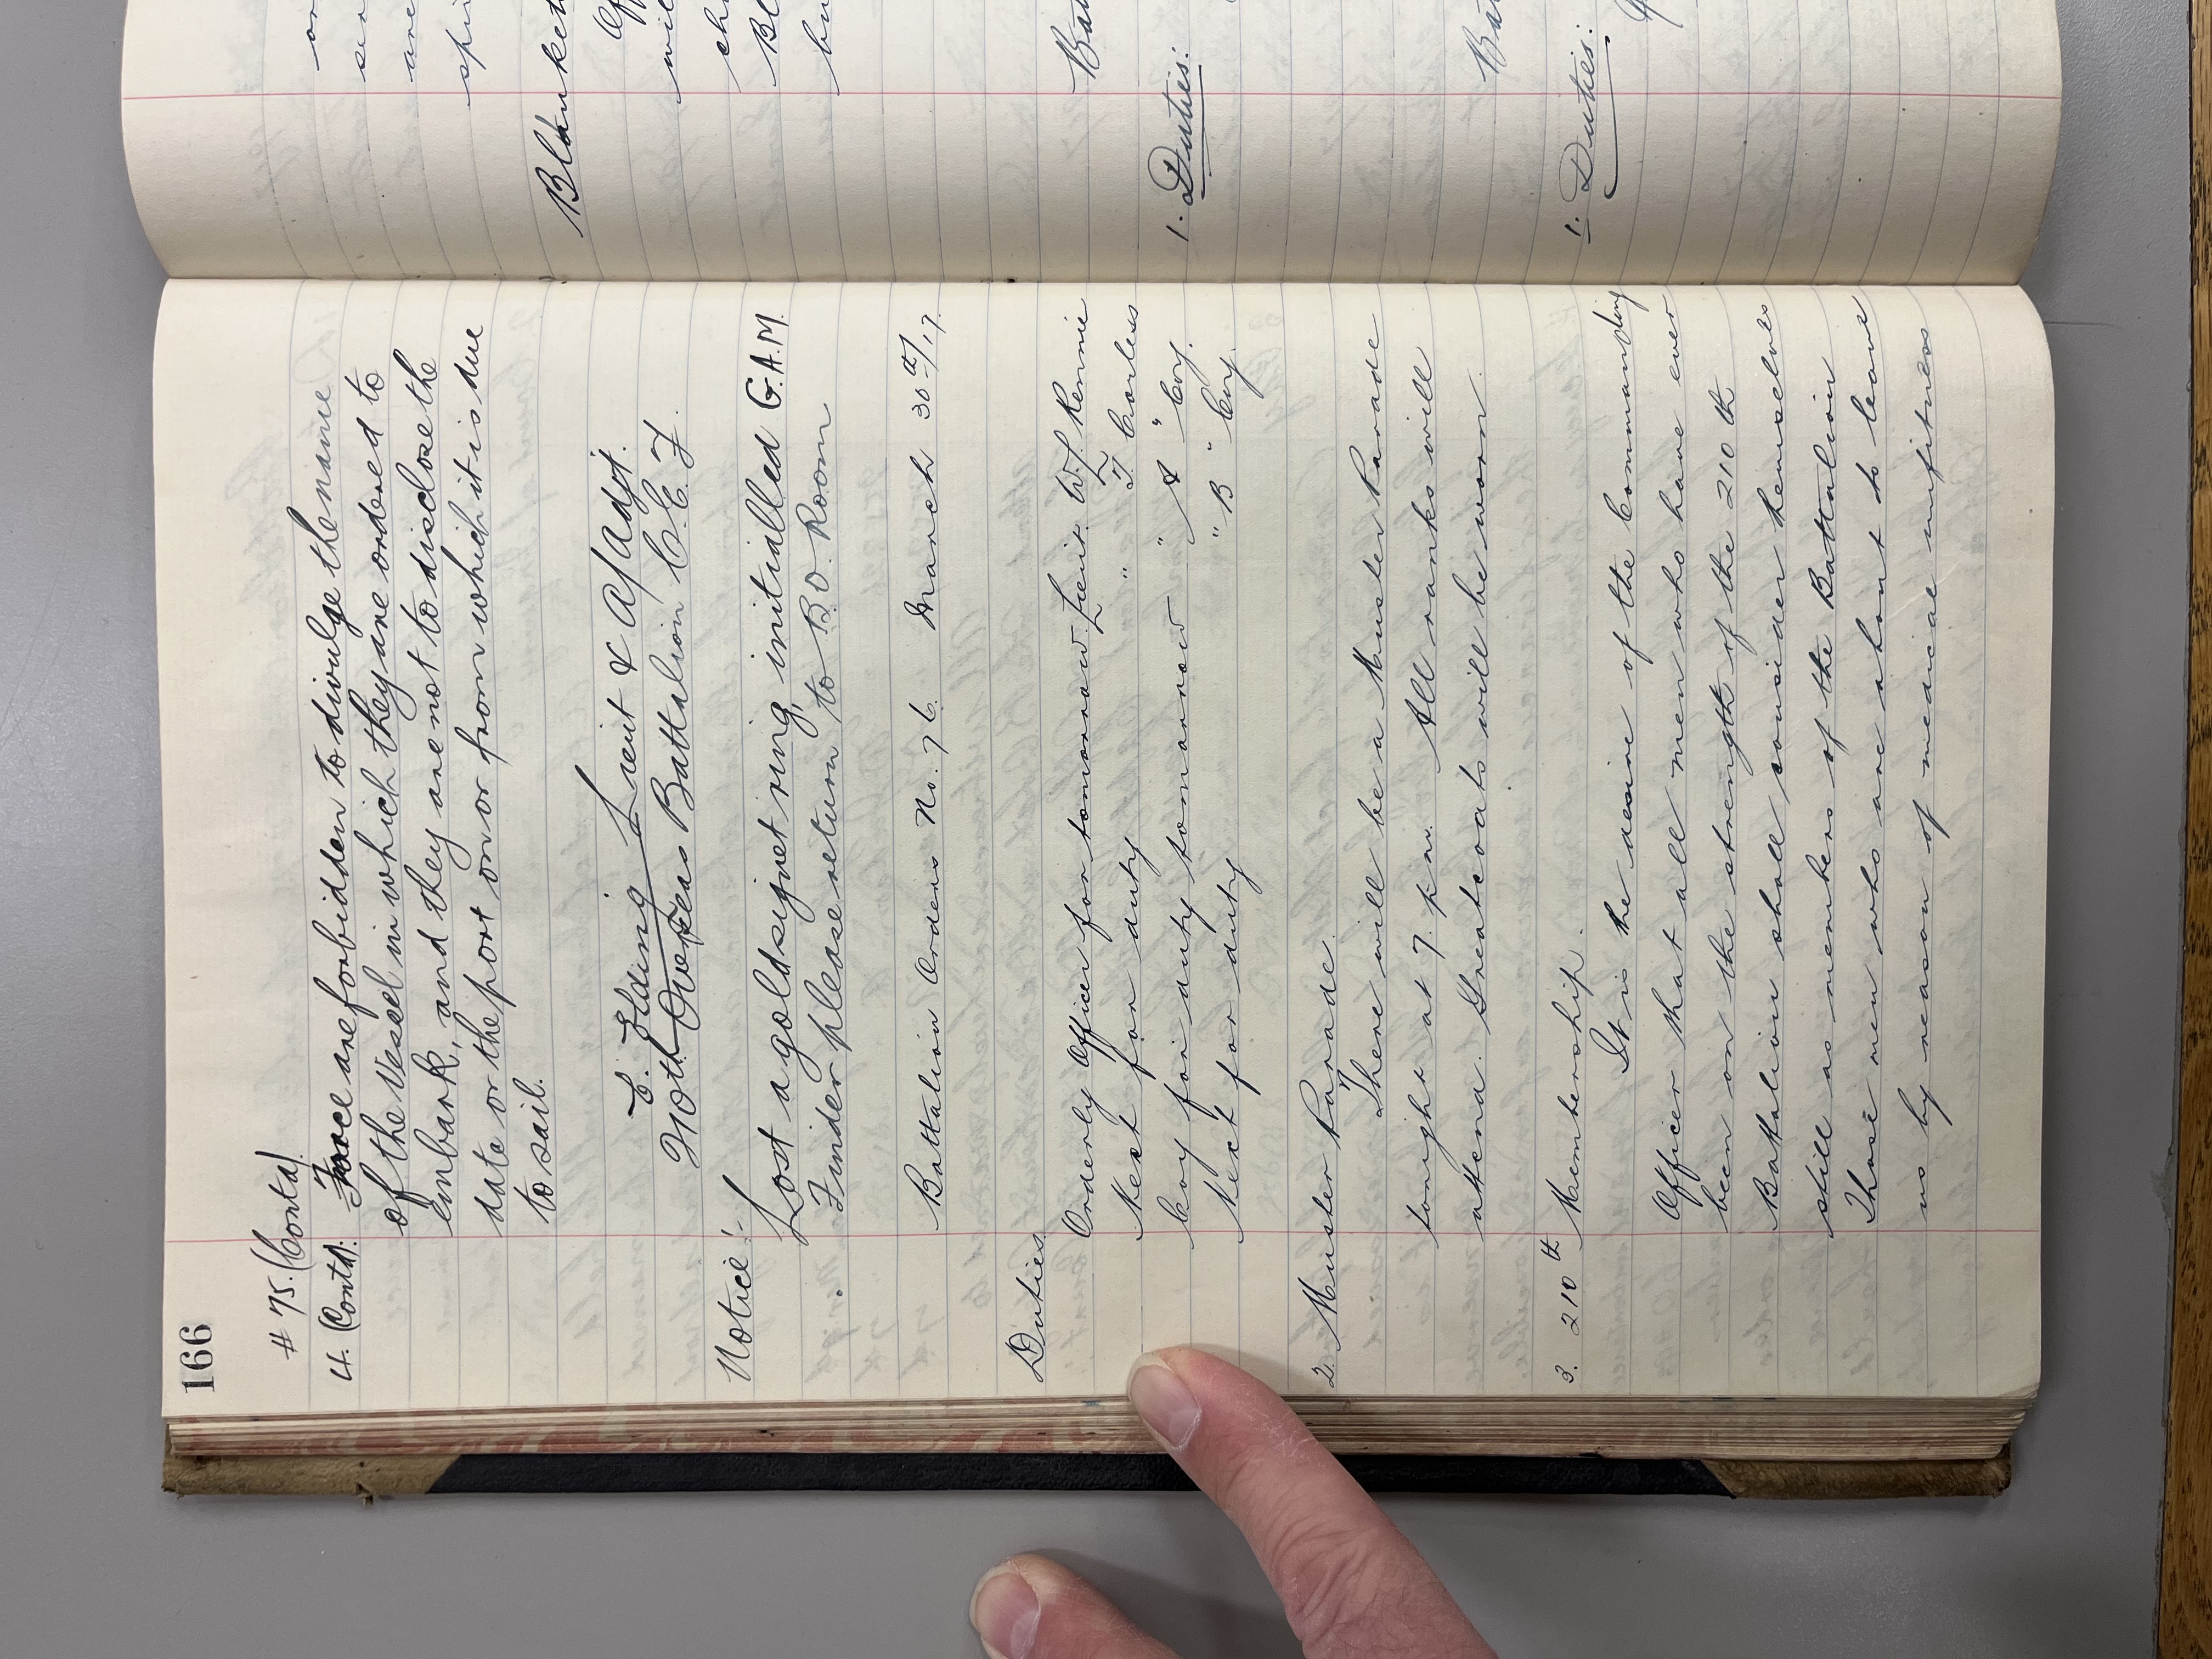 166
# 75. (Contd).
4. (Contd). Force are forbidden to divulge the name
of the Vessel in which they are ordered to
embark, and they are not to disclose the
date or the port on or from which it is due
to sail.
E. Elding Lieut & A/Adjt.
210th Overseas Battalion C.E.F.
Notice:-
Lost a gold signet ring, initialled G.A.M.
Finder please return to B.O. Room
Battalion Orders No. 76. March 30th/17.
Duties
Orderly Officer for tomorrow. Lieut. W.J. Rennie
Next for duty " T Corless
Coy for duty tomorrow " "A" Coy.
Next for duty " "B" Coy.
2. Muster Parade.
There will be a Muster Parade
tonight at 7. pm. All ranks will
attend. Greatcoats will be worn.
3. 210th Membership.
It is the desire of the Commanding
Officer that all men who have ever
been on the strength of the 210th
Battalion shall consider themselves
still as members of the Battalion
Those men who are about to leave
us by reason of medical unfitness
are
Blanket
will
Bat
1. Duties:
Bat
1. Duties: